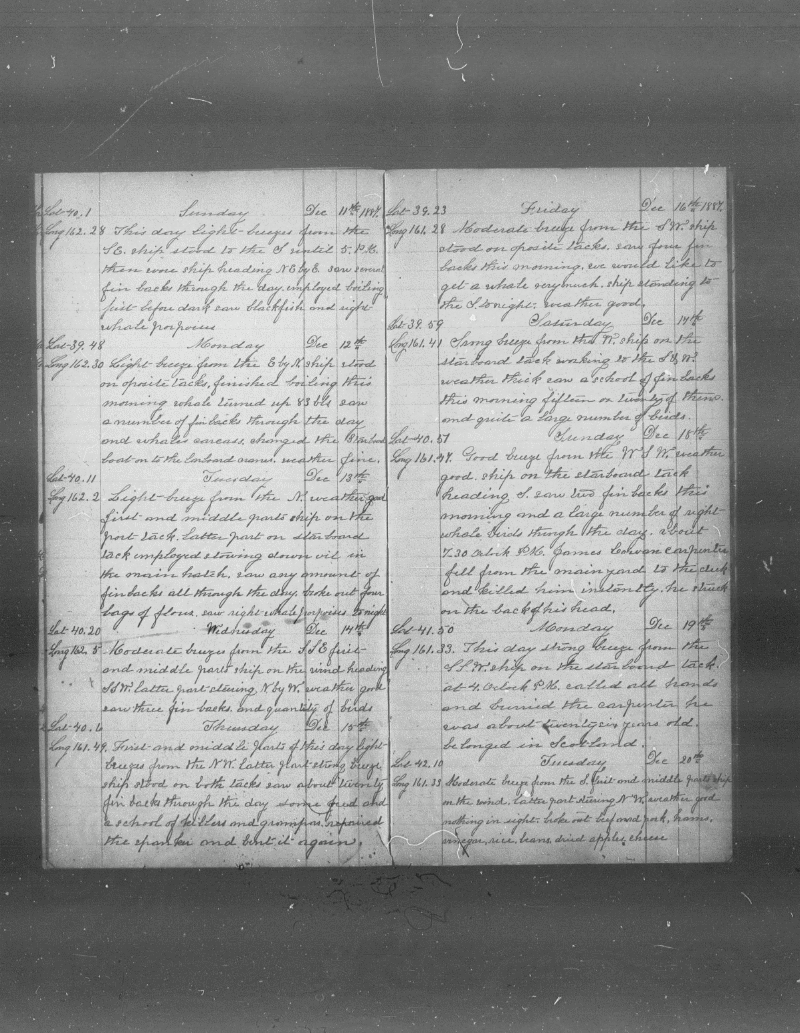 Lat 40.1 Sunday Dec 11th 1887.
Long 162.28 This day light breezes from the
S.E. ship stood to the S until 5. P.M.
then wore ship heading N.E by E. saw several
fin backs through the day, employed boiling
just before dark saw blackfish and right
whale porpoises
Lat 39.48 Monday Dec 12th
Long 162.30 Light breeze from the E by N. ship stood
on oposite tacks, finished boiling this
morning whale turned up 83 bls saw
a number of fin backs through the day
and whale carcass, changed the Starboard
boat on to the larboard cranes. weather fine.
Lat 40.11 Tuesday Dec 13th
Long 162.2 Light breeze from the N. weather good
first and middle parts ship on the
port tack. latter part on starboard
tack employed stowing down oil in
the main hatch. saw any amount of
fin backs all through the day, broke out four
bags of flour, saw right whale porpoises to night
Lat 40.20 Wednesday Dec 14th
Long 162.5 Moderate breezes from the S.S.E first
and middle parts ship on the wind heading
S.S.W. latter part stering N by W. weather good
saw three fin backs. and quantity of birds
Lat 40.6 Thursday Dec 15th
Long 161.49. First and middle parts of this day light
breezes from the N.W. latter part strong breeze,
ship stood on both tacks saw about twenty
fin backs through the day some feed and
a school of killers and grampas, repaired
the spanker and bent it again.
Lat 39.23 Friday Dec 16th 1887.
Long 161.28 Moderate breeze from the S.W. ship
stood on oposite tacks. saw four fin
backs this morning. we would like to
get a whale very much, ship standing to
the S to night. weather good.
Lat 39.59 Saturday Dec 17th
Long 161.41 Samg breeze from the W. ship on the
starboard tack working to the S & W.
weather thick saw a school of fin backs
this morning fifteen or twenty of them.
and quite a large number of birds.
Lat 40.57 Sunday Dec 18th
Long 161.47. Good breeze from the W.S.W. weather
good. ship on the starboard tack
heading S. saw two fin backs this
morning and a large number of right
whale birds through the day. about
7.30 Oclock P.M. James carpenter
fell from the main yard to the deck
and killed him instantly. he struck
on the back of his head.
Lat 41.50 Monday Dec 19th
Long 161.33. This day strong breeze from the
S.S.W. ship on the starboard tack.
at 4. Oclock P.M. called all hands
and burried the carpenter he
was about twenty six years old.
belonged in Scotland.
Lat 42.10 Tuesday Dec 20th
Long 161.33 Moderate breeze from the S. first and middle parts ship
on the wind. latter part stering N.W. weather good
nothing in sight. broke out beef and pork, hams,
vinegar, rice, beans, dried apples, cheese